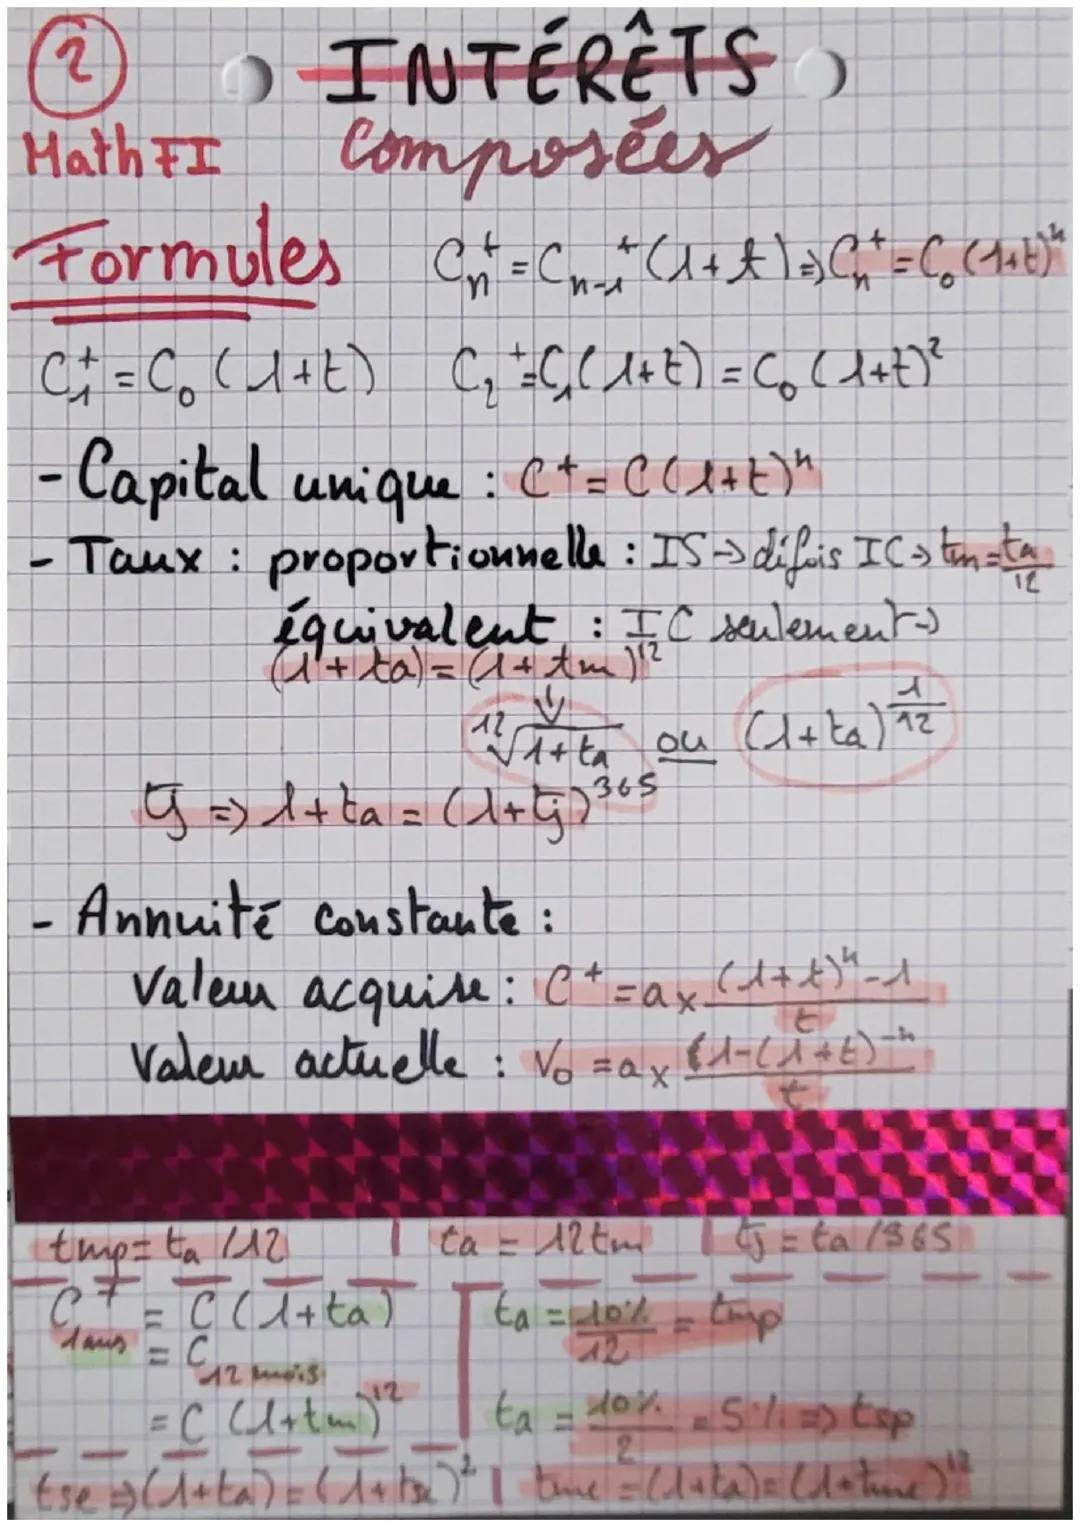 2
INTÉRÊTS
Math FI Composées
Formules Cn⁺ = Cn-1⁺ (1+t) ⇒ Cn⁺ = C₀ (1+t)ⁿ
C₁⁺ = C₀ (1+t) C₂⁺ = C₁ (1+t) = C₀ (1+t)²
- Capital unique : C⁺ = C (1+t)ⁿ
- Taux : proportionnelle : IS → difois IC → tm = ta/12
équivalent : IC seulement →
(1+ta) = (1+tm)¹²
↓
¹²√1+ta ou (1+ta)^1/12
tj ⇒ 1+ta = (1+tj)³⁶⁵
- Annuité constante :
Valeur acquise : C⁺ = a x (1+t)ⁿ-1 / t
Valeur actuelle : V₀ = a x 1-(1+t)⁻ⁿ / t
tmp = ta /12 | ta = 12tm | tj = ta /365
C⁺ 1ans = C (1+ta) ta = 10% / 12 = tmp
= C 12 mois
= C (1+tm)¹² ta = 10% / 2 = 5% ⇒ tsp
tse ⇒ (1+ta) = (1+tse)² | tme = (1+ta) = (1+tme)¹²